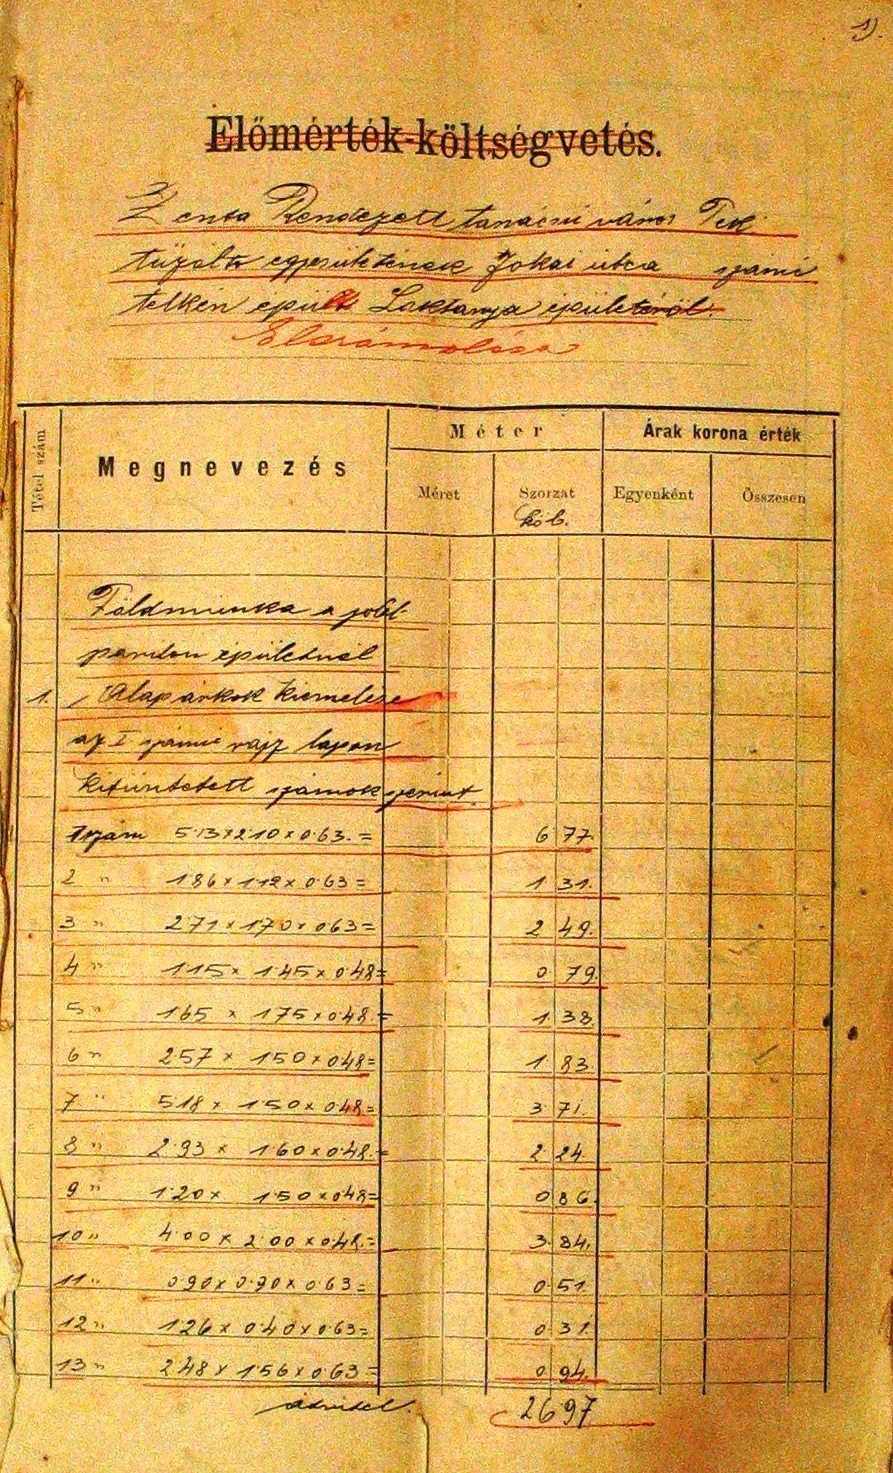 1).
Előmérték-költségvetés.
Zenta Rendezett tanácsú város Tek
tűzoltó egyesületének Jokai utca számú
telkén épült Laktanya épületéről.
Elszámolása
Tétel szám
Megnevezés
Méter
Árak korona érték
Méret
Szorzat
Egyenként
Összesen
köb.
Földmunka a jobb
pavilon épületnél
1. Alap árkok kiemelése
az I számú rajz lapon
kitüntetett számok szerint
1 szám 5·13×2·10×0·63.= 6 77
2 " 1·86×1·12×0·63= 1 31.
3 " 2·71×1·70×0·63= 2 49.
4 " 1·15× 1·45×0·48= 0 79.
5 " 1·65 × 1·75×0·48.= 1 38.
6 " 2·57 × 1·50×0·48= 1 83.
7 " 5·18 × 1·50×0·48= 3 71.
8 " 2·93 × 1·60×0·48.= 2 24.
9 " 1·20× 1·50×0·48= 0 86.
10 " 4·00 × 2·00×0·48.= 3 84.
11 " 0·90×0·90×0·63= 0 51.
12 " 1·26× 0·40×0·63= 0 31.
13 " 2·48× 1·56×0·63= 0 94.
átvitel. 26 97